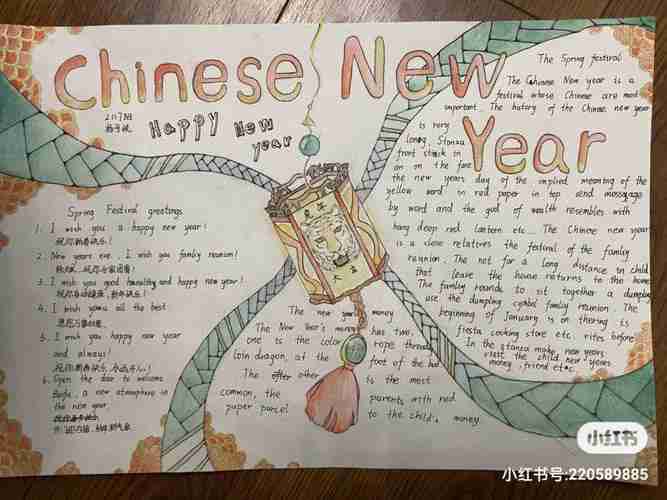 Chinese New
Year
Happy New
year
Spring Festival greetings
1. I wish you a happy new year!
祝你新春快乐!
2. New years eve, I wish you family reunion!
3. I wish you good and happy new year!
祝你身体健康,新年快乐!
4. I wish you all the best
愿您万事如意.
5. I wish you happy new year
and always!
6. Open the door to welcome
a new atmosphere in
the new year
The Spring festival
The Chinese New year is a
festival whose Chinese are most
important. The history of the Chinese new year
is very
long, Stanza
front stuck in
on on the fore
the new years day of the inspired meaning of the
yellow word on red paper in top send
by word and the god of wealth resembles with
hang deep red lantern etc... The Chinese new year
is a close relatives the festival of the family
reunion. The not for a long distance in child
that leave the house returns to the home.
The family rounds to sit together a dumpling
use the dumpling cymbal family reunion. The
beginning of January is on thering is
fiesta cooking store etc. rites before
In the stanza make new years
visit the child new years
money, friend etc..
The new year money
The New Year's money has two.
one is the color rope through
coin dragon, at the foot of the bed
The other is the most
common, the parents with red
paper parcel to the child's money.
大吉
小红书
小红书号:220589885